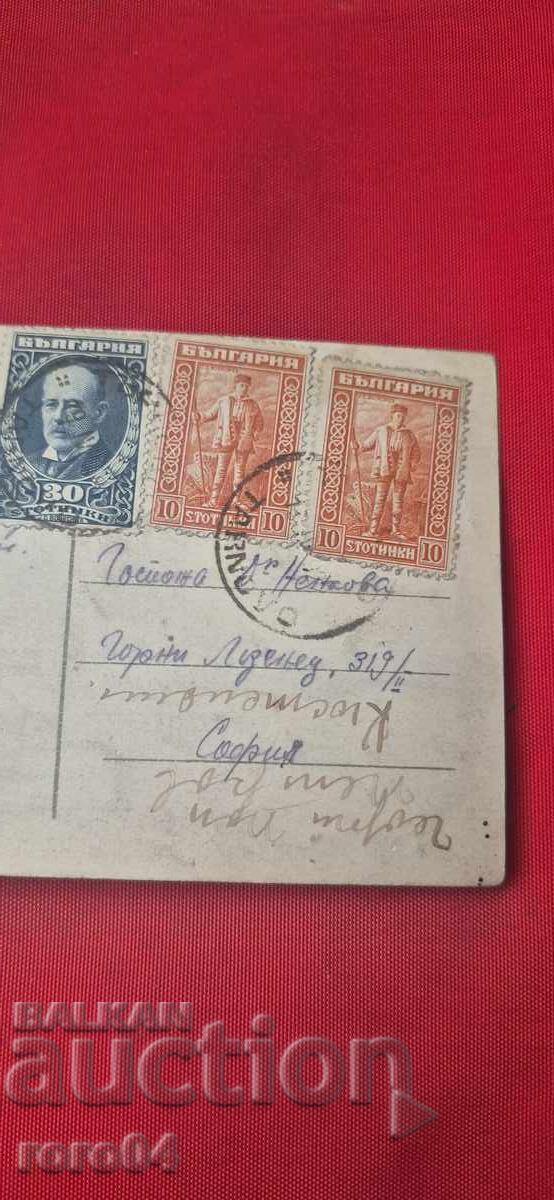 БЪЛГАРИЯ БЪЛГАРИЯ БЪЛГАРИЯ
30 10 10 10 10
СТОТИНКИ СТОТИНКИ СТОТИНКИ
Госпожа Др Ненкова
Горни Лозенец, 319/II
Кюстендил
София
Георги Поп
BALKAN
auction
roro04